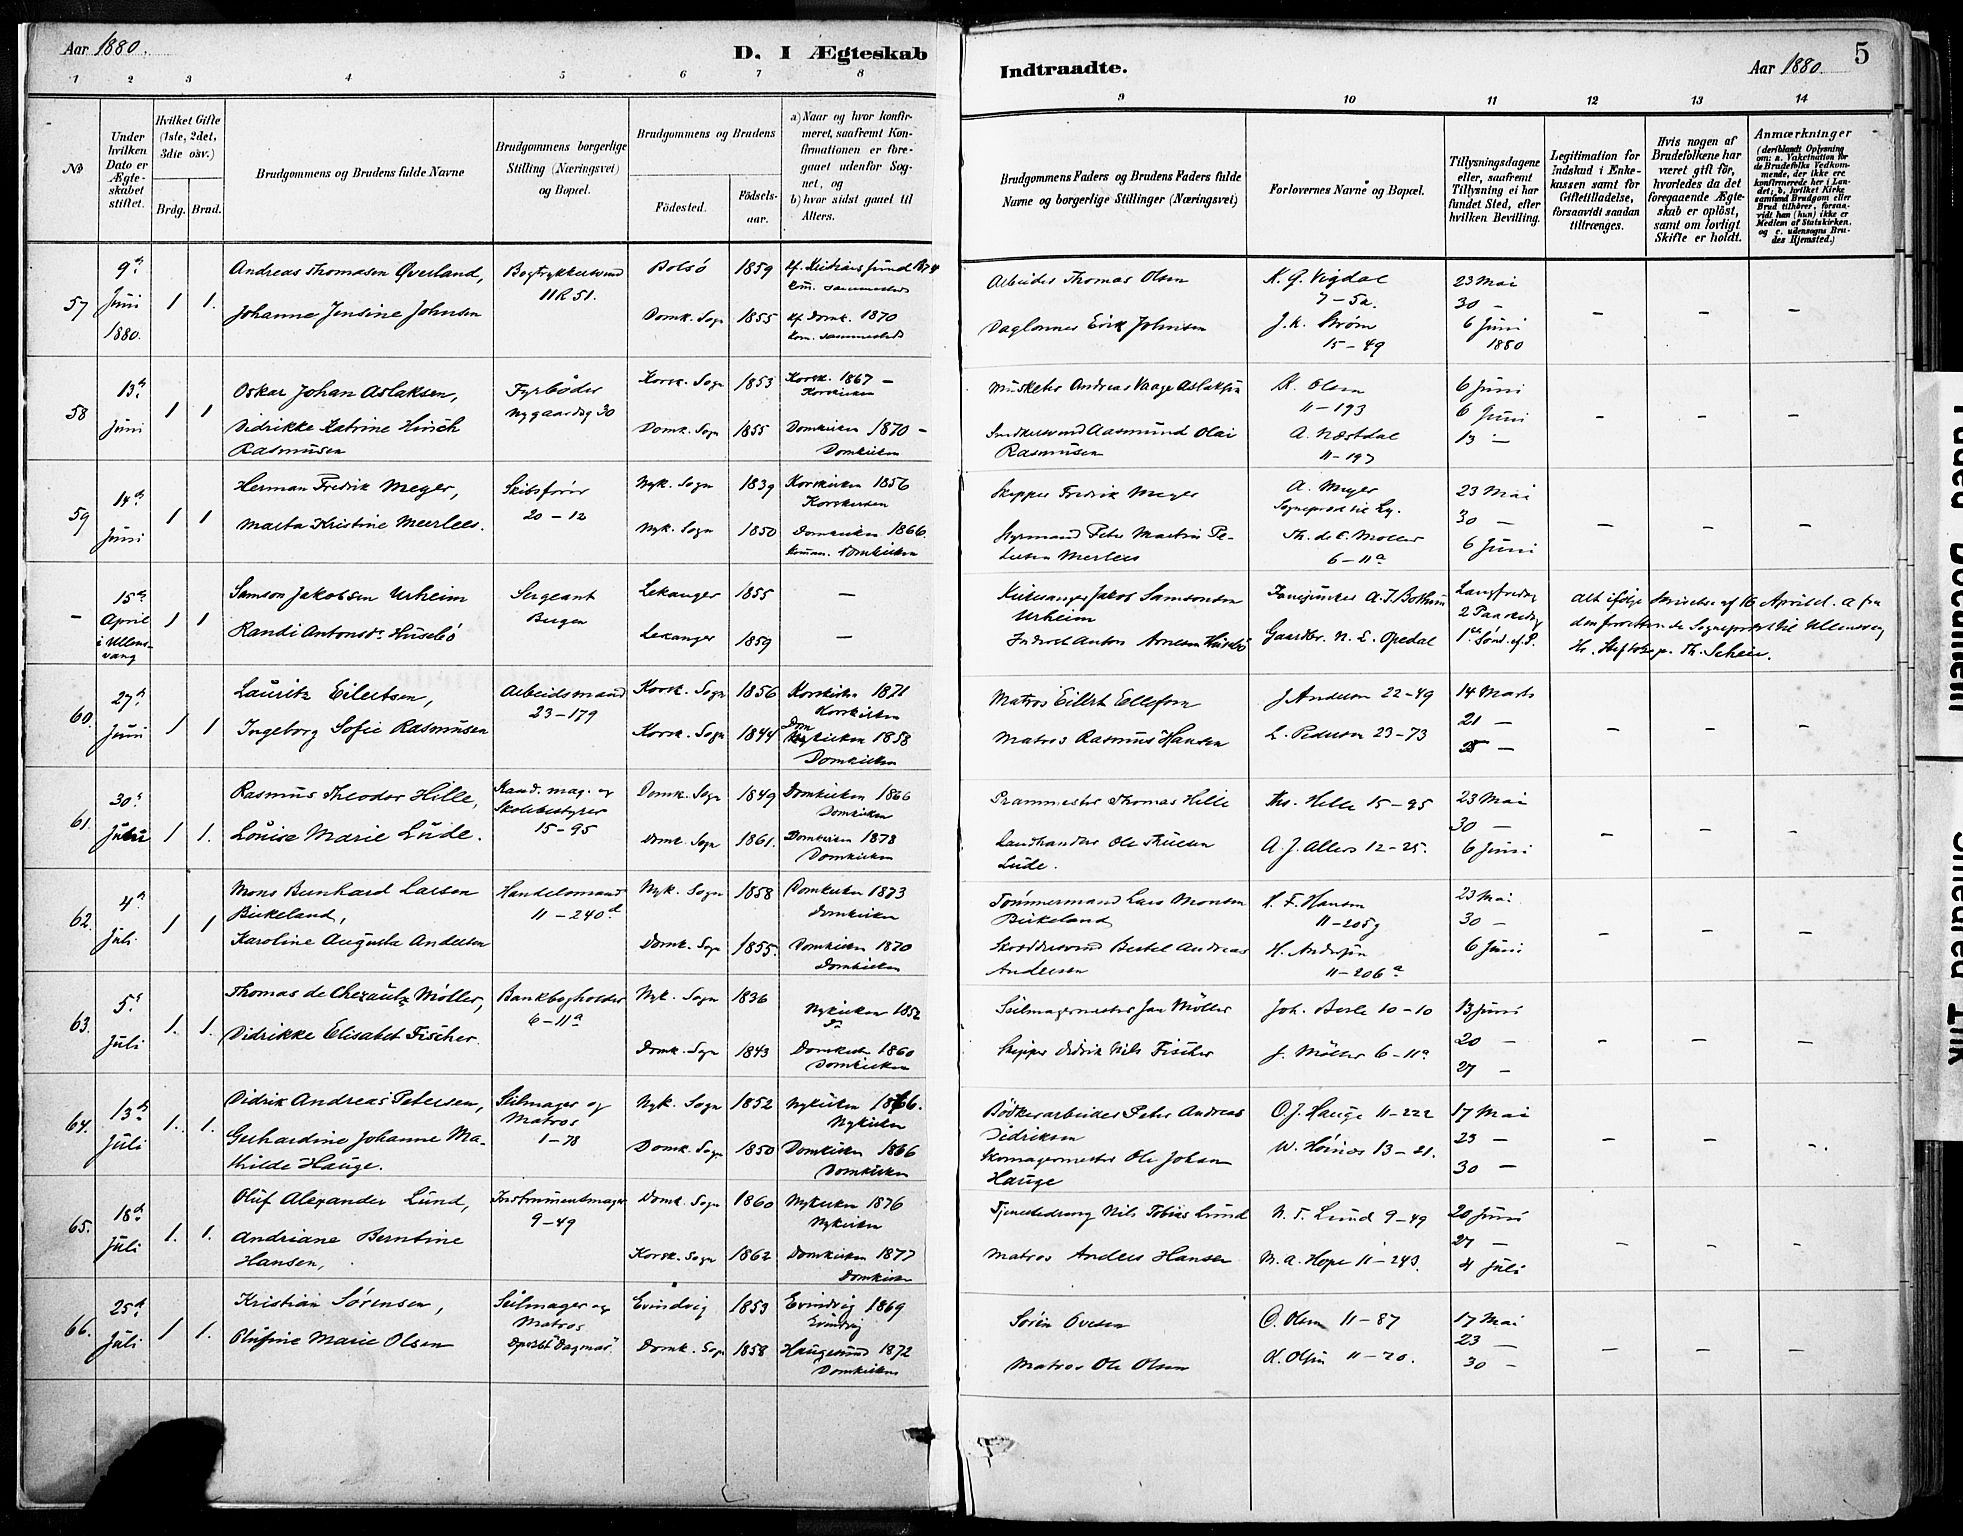 Aar 1880.
D. I Ægteskab
Indtraadte.
Aar 1880.
5
1 2 3 4 5 6 7 8
9 10 11 12 13 14
No
Under hvilken Dato er Ægteskabet stiftet.
Hvilket Gifte (1ste, 2det, 3die osv.)
Brdg. Brud.
Brudgommens og Brudens fulde Navne
Brudgommens borgerlige Stilling (Næringsvei) og Bopæl.
Brudgommens og Brudens
Födested.
Födselsaar.
a) Naar og hvor konfirmeret, saafremt Konfirmationen er foregaaet udenfor Sognet, og
b) hvor sidst gaaet til Alters.
Brudgommens Faders og Brudens Faders fulde Navne og borgerlige Stillinger (Næringsvei)
Forlovernes Navne og Bopæl.
Tillysningsdagene eller, saafremt Tillysning ei har fundet Sted, efter hvilken Bevilling.
Legitimation for Indskud i Enkekassen samt for Giftetilladelse, forsaavidt saadan tiltrænges.
Hvis nogen af Brudefolkene har været gift før, hvorledes da det foregaaende Ægteskab er opløst, samt om lovligt Skifte er holdt.
Anmærkninger
(deriblandt Oplysning om: a. Vakcination for de Brudefolks Vedkommende, der ikke ere konfirmerede her i Landet; b. hvilket Kirkesamfund Brudgom eller Brud tilhører, forsaavidt han (hun) ikke er Medlem af Statskirken, og c. udensogns Brudes Hjemsted.)
57 9de Juni 1880. 1 1.
Andreas Thomasen Øverland,
Johanne Jensine Johnsen
Bogtrykkersvend
11 R 51.
Bolsö 1859
Domk. Sogn 1855
kf. Kristianssund 1874
kom. sammesteds
kf. Domk. 1870
kom. sammesteds
Arbeider Thomas Olsen
Daglønner Eirk Johnsen
K. G. Vigdal
7-5a.
J. K. Strøm
15-49
23 Mai
30 -
6 Juni
1880
- - -
58 13de Juni 1 1
Oskar Johan Aslaksen,
Didrikke Katrine Hinsch
Rasmusen
Fyrbøder
Nygaardsg 30
Korsk. Sogn 1853
Domk. Sogn 1855
Korsk. 1867 -
Korskirken
Domkirken 1870 -
Domkirken
Musketer Andreas Vaage Aslaksen
Snedkersvend Aasmund Olai
Rasmusen
K. Olsen
11-193
A. Næstdal
11-197
6 Juni
6 Juni
13 -
- - -
59 14de Juni 1 1
Herman Fredrik Meyer,
Marta Kristine Meerlees.
Skibsfører
20-12
Nyk. Sogn 1839
Nyk. Sogn 1850
Korskirken 1856
Korskirken
Domkirken 1866.
Domkirken
Skipper Fredrik Meyer
Styrmand Peter Martin Petersen Merlees
A. Meyer
Sogneprest til Ly.
Th. de C. Møller
6-11a
23 Mai
30 -
6 Juni
- - -
- 15de April i Ullensvang 1 1
Samson Jakobsen Urheim
Randi Antonsdr. Husebö
Sergeant
Bergen
Lekanger 1855
Lekanger 1859
-
-
Kirkesanger Jakob Samsonsen
Urheim
Inderst Anton Arnesen Husebö
Fanejunker A. J. Bothun
Gaardbr. N. L. Opedal
Langfredag
2 Paaskedag
1ste Sønd. ef. P.
Alt ifølge Skrivelse af 16 April d. A fra
den foretten de Sogneprest til Ullensvang
Hr. Stiftsp. Th. Scheie.
60. 27de Juni 1 1
Lauritz Eilertsen,
Ingeborg Sofie Rasmusen
Arbeidsmand
23-179
Korsk. Sogn 1856
Korsk. Sogn 1844
Korskirken 1871
Korskirken
Domkirken 1858
Domkirken
Matros Eilert Ellefsen
Matros Rasmus Hansen
J. Andersen 22-49
L. Pedersen 23-73
14 Marts
21 -
28 -
- - -
61. 30te Juni 1 1.
Rasmus Theodor Hille,
Louise Marie Lude.
Kand. mag. og
Skolebestyrer
15-95
Domk. Sogn 1849
Domk. Sogn 1861.
Domkirken 1866
Domkirken
Domkirken 1878
Domkirken
Prammester Thomas Hille
Landhandler Ole Truesen
Lude.
Ths. Hille 15-95
A. J. Allers 12-25.
23 Mai
30 -
6 Juni
- - -
62. 4de Juli 1 1
Mons Bernhard Larsen
Birkeland,
Karoline Augusta Andersen
Handelsmand
11-240d
Nyk. Sogn 1858
Domk. Sogn 1855.
Domkirken 1873
Domkirken
Domkirken 1870
Domkirken
Tømmermand Lars Monsen
Birkeland
Skræddersvend Bertel Andreas
Andersen
K. F. Hansen
11-205g
H. Andersen
11-206a
23 Mai
30 -
6 Juni
- - -
63. 5te Juli 1. 1.
Thomas de Chezaulx Möller,
Didrikke Elisabet Fischer.
Bankbogholder
6-11a
Nyk. Sogn 1836
Domk. Sogn 1843
Nykirken 1852
Do
Domkirken 1860
Domkirken
Seilmagermester Jan Möller
Skipper Didrik Nils Fischer
Joh. Berle 10-10
J. Möller 6-11a
13 Juni
20 -
27 -
- - -
64. 13de Juli 1. 1.
Didrik Andreas Petersen,
Gerhardine Johanne Mathilde Hauge.
Seilmager og
Matros
1-78
Nyk. Sogn 1852
Domk. Sogn 1850
Nykirken 1866.
Nykirken
Domkirken 1866
Domkirken
Bödkerarbeider Peter Andreas
Didriksen
Skomagermester Ole Johan
Hauge
O. J. Hauge 11-222
W. Höinæs 13-21.
17 Mai
23 -
30 -
- - -
65. 18de Juli 1. 1.
Oluf Alexander Lund,
Andriane Berntine
Hansen,
Instrumentmager
9-49
Domk. Sogn 1860
Korsk. Sogn 1862
Nykirken 1876
Nykirken
Domkirken 1877
Domkirken
Tjenestedreng Nils Tobias Lund
Matros Anders Hansen
N. T. Lund 9-49
M. A. Hope 11-243.
20 Juni
27 -
4 Juli
- - -
66. 25de Juli 1 1.
Kristian Sörensen,
Olufine Marie Olsen
Seilmager og
Matros
Dpskbt "Dagmar"
Evindvig 1853
Domk. Sogn 1858
Evindvig 1869
Evindvig
Haugesund 1872
Domkirken
Sörin Ovesen
Matros Ole Olsen
O. Olsen 11-87
K. Olsen 11-20.
17 Mai
23 -
30 -
- - -